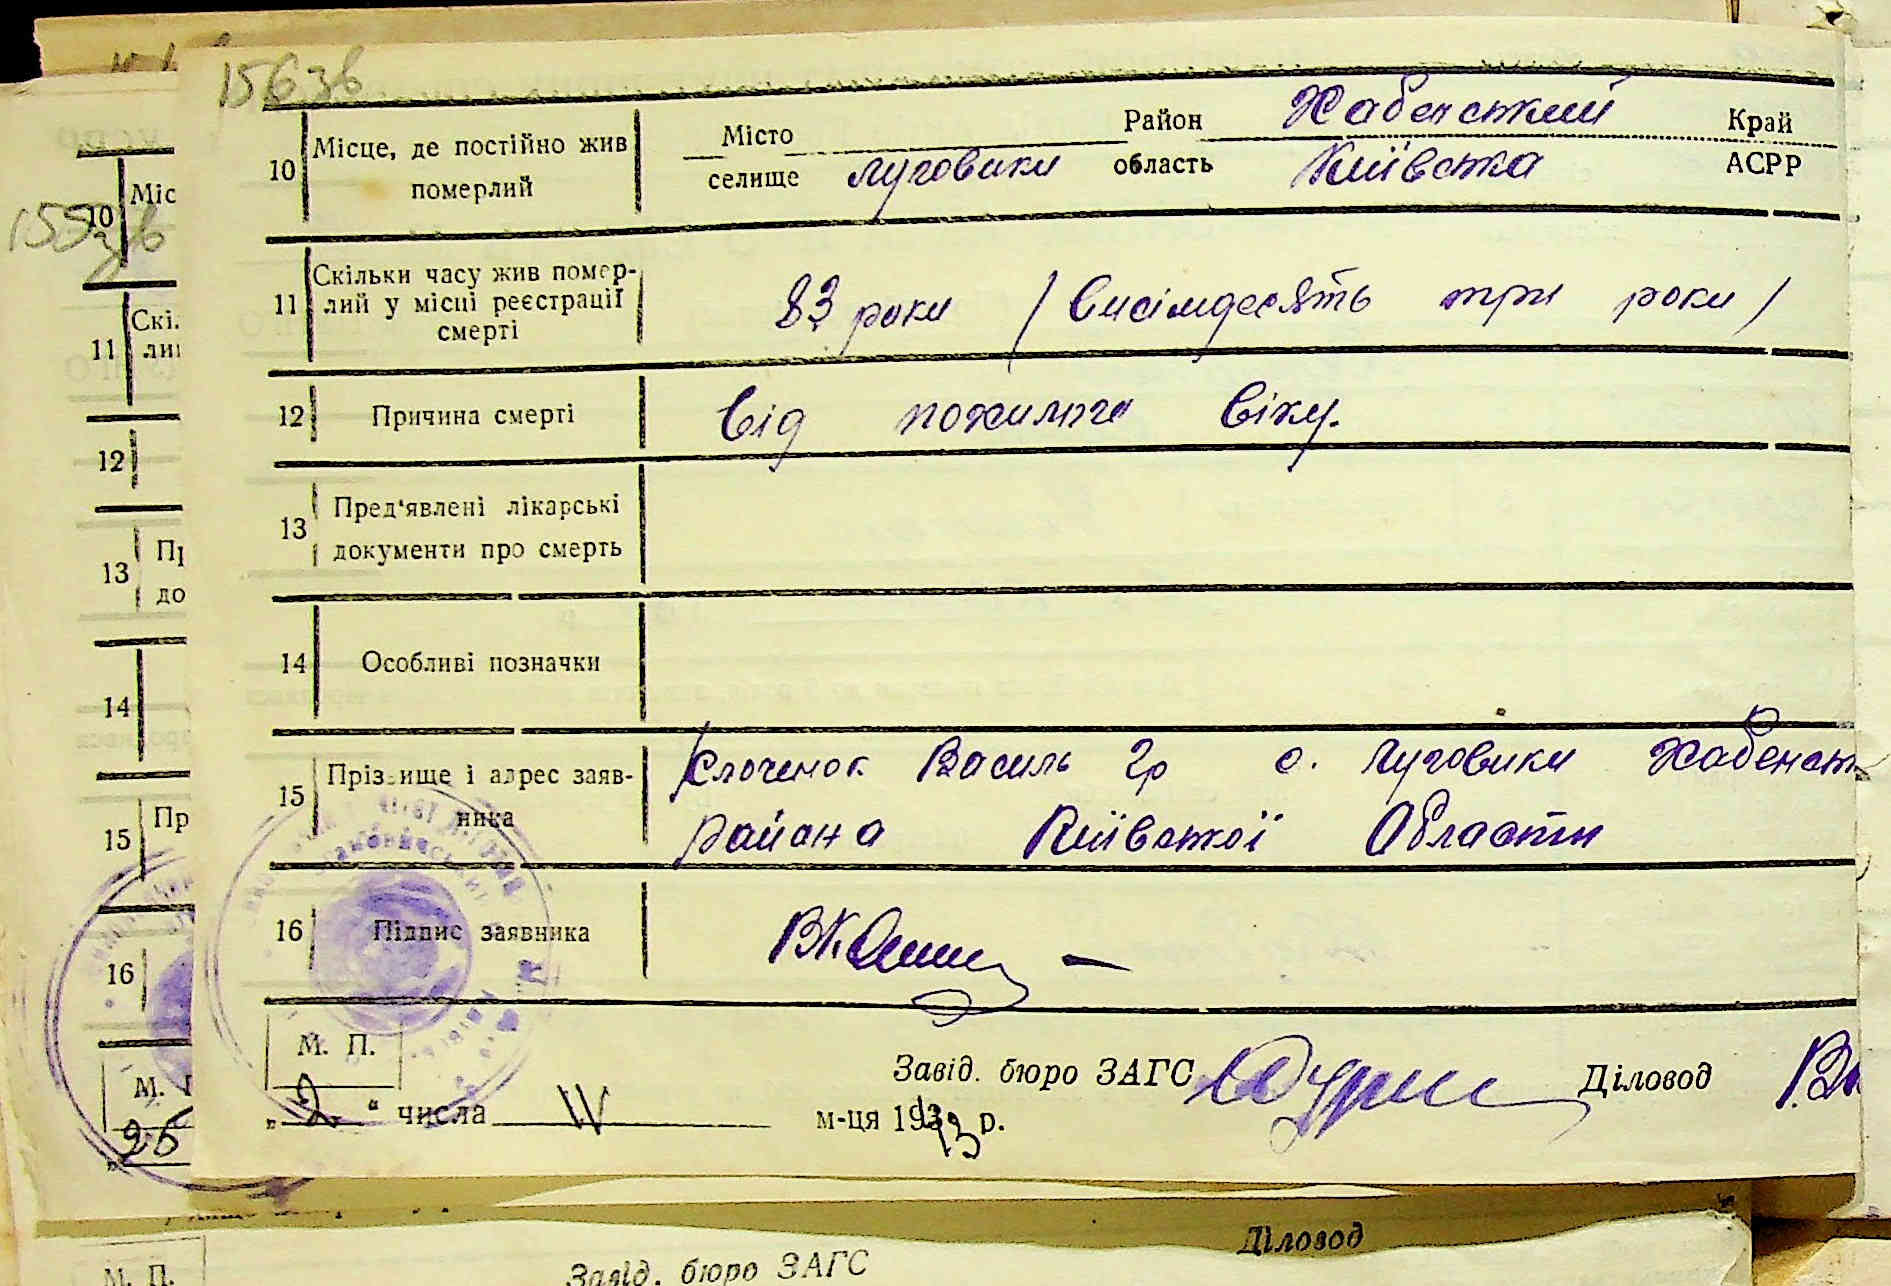 156 зв
10 Місце, де постійно жив померлий
Місто селище Луговики
Район Хабенський Край
область Київська АСРР
155 зв
11 Скільки часу жив помер-
лий у місці реєстрації
смерті
83 роки / висімдесять три роки /
12 Причина смерті
Від пожилого віку.
13 Пред'явлені лікарські
документи про смерть
14 Особливі позначки
15 Прізвище і адрес заяв-
ника
Василь Гр с. Луговики Хабенськ
района Київської Области
16 Підпис заявника
М. П.
Завід. бюро ЗАГС
Діловод
„2" числа IV м-ця 1943 р.
10 Міс
11 Скі
ли
12
13 Пр
до
14
15 Пр
16
М.
26
Діловод
М. П.
Завід. бюро ЗАГС